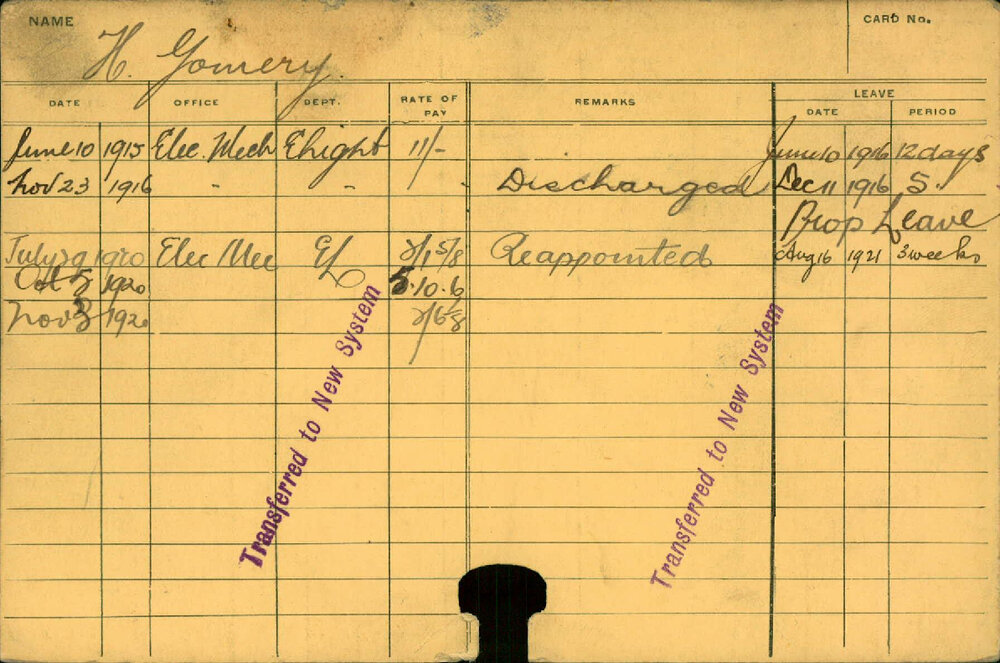 NAME H. Gomery. CARD No.
DATE OFFICE DEPT. RATE OF PAY REMARKS LEAVE DATE PERIOD
June 10 1915 Elec. Mech Elight 11/- June 10 1916 12 days
Nov 23 1916 " " " Discharged Dec 11 1916 5
Prop Leave
July 29 1920 Elec Mec EL 2/1 5/8 Reappointed Aug 16 1921 3 weeks
Oct 5 1920 5.10.6
Nov 3 1920
Transferred to New System
Transferred to New System